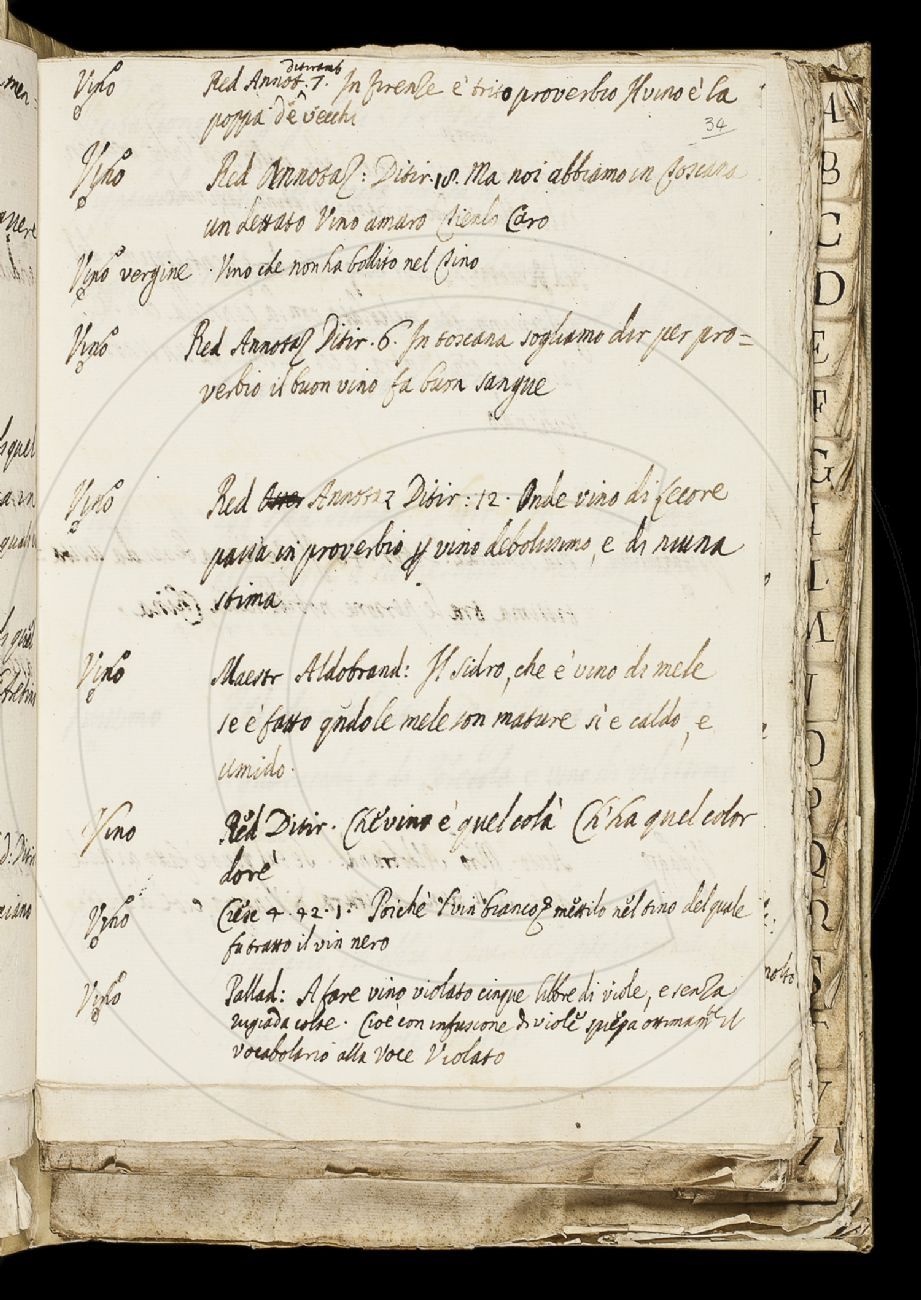 Vino Red Annot. Ditiramb 7. In firenze è trito proverbio Il vino è la
poppa de vecchi
34
Vino Red Annotaz: Ditir. 18. Ma noi abbiamo in Toscana
un dettato Vino amaro Tienlo Caro
Vino vergine . Vino che non ha bollito nel Tino
Vino Red Annotaz Ditir. 6. In toscana sogliamo dir per pro=
verbio il buon vino fa buon sangue
Vino Red Annotaz Ditir: 12. Onde vino di Lecore
passa in proverbio p vino debolissimo, e di niuna
stima
Vino Maestr Aldobrand: Il sidro, che è vino di mele
se è fatto qndo le mele son mature si è caldo, e
umido.
Vino Red Ditir. Ch'è vino è quel colà Ch'ha quel color
dorè
Vino Cresc 4. 42. 1. Poichè 'l vin bianco mettilo nel tino del quale
fu tratto il vin nero
Vino Pallad: A fare vino violato cinque libbre di viole, e senza
rugiada colte. Cioè con infusione di viole ottimamte il
vocabolario alla voce Violato
A
B
C
D
E
F
G
I
L
M
O
P
Q
R
S
V
Z